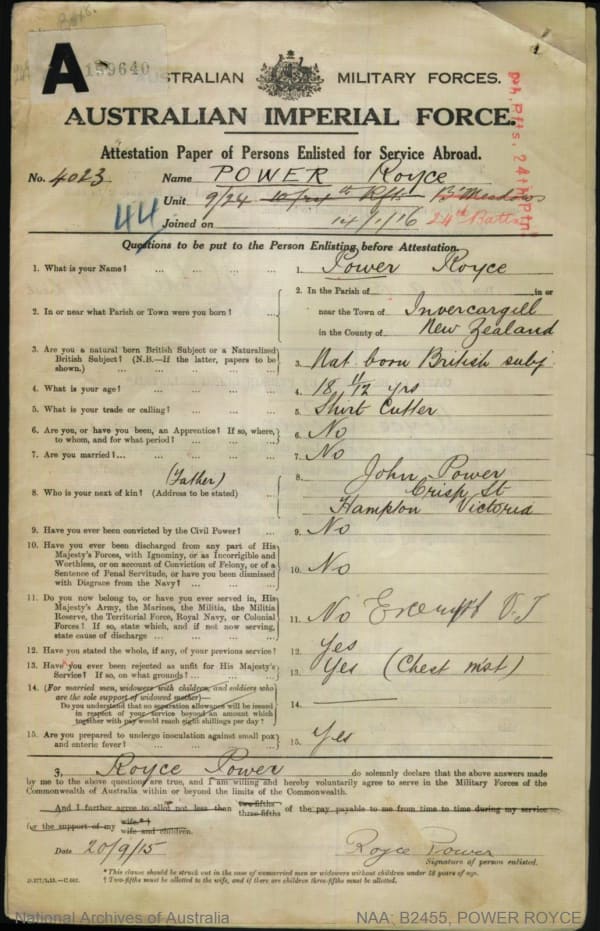 A
159640
AUSTRALIAN MILITARY FORCES.
AUSTRALIAN IMPERIAL FORCE.
Attestation Paper of Persons Enlisted for Service Abroad.
No. 4023 Name POWER Royce
Unit 9/24 10/24th Rfts B'Meadows
24th Battn
44 Joined on 14/1/16
Questions to be put to the Person Enlisting before Attestation.
1. What is your Name? ... ... ... ... 1. Power Royce
2. In or near what Parish or Town were you born? ... 2. In the Parish of in or
near the Town of Invercargill
in the County of New Zealand
3. Are you a natural born British Subject or a Naturalized
British Subject? (N.B.—If the latter, papers to be
shown.) ... ... ... ... 3. Nat. born British subj
4. What is your age? ... ... ... ... 4. 18 11/12 yrs
5. What is your trade or calling? ... ... ... 5. Shirt Cutter
6. Are you, or have you been, an Apprentice? If so, where,
to whom, and for what period? ... ... ... 6. No
7. Are you married? ... ... ... ... 7. No
(Father)
8. Who is your next of kin? (Address to be stated) ... 8. John Power
Crisp St
Hampton Victoria
9. Have you ever been convicted by the Civil Power? ... 9. No
10. Have you ever been discharged from any part of His
Majesty's Forces, with Ignominy, or as Incorrigible and
Worthless, or on account of Conviction of Felony, or of a
Sentence of Penal Servitude, or have you been dismissed
with Disgrace from the Navy? ... ... ... 10. No
11. Do you now belong to, or have you ever served in, His
Majesty's Army, the Marines, the Militia, the Militia
Reserve, the Territorial Force, Royal Navy, or Colonial
Forces? If so, state which, and if not now serving,
state cause of discharge ... ... ... 11. No Exempt
12. Have you stated the whole, if any, of your previous service? 12. Yes
13. Have you ever been rejected as unfit for His Majesty's
Service? If so, on what grounds? ... ... 13. Yes (Chest mst)
14. (For married men, widowers with children, and soldiers who
are the sole support of widowed mother)—
Do you understand that no separation allowance will be issued
in respect of your service beyond an amount which
together with pay would reach eight shillings per day? 14.
15. Are you prepared to undergo inoculation against small pox
and enteric fever? ... ... ... ... 15. Yes
I, Royce Power do solemnly declare that the above answers made
by me to the above questions are true, and I am willing and hereby voluntarily agree to serve in the Military Forces of the
Commonwealth of Australia within or beyond the limits of the Commonwealth.
And I further agree to allot not less than two-fifths three-fifths of the pay payable to me from time to time during my service
for the support of my wife*†
wife and children.
Date 20/9/15 Royce Power
Signature of person enlisted.
* This clause should be struck out in the case of unmarried men or widowers without children under 18 years of age.
† Two-fifths must be allotted to the wife, and if there are children three-fifths must be allotted.
National Archives of Australia NAA: B2455, POWER ROYCE